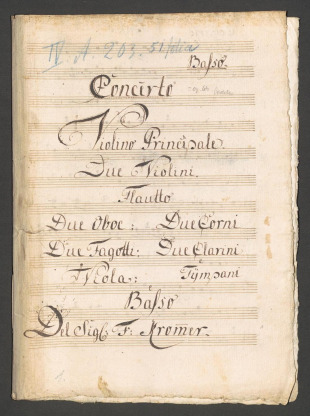 IV. A. 203. 51 folia
Basso
Concerto
Violino Principale.
Due Violini.
Flautto
Due Oboe; Due Corni
Due Fagotti; Due Clarini
Viola; Tÿmpani
Basso
Del Sigl: F: Kromer.